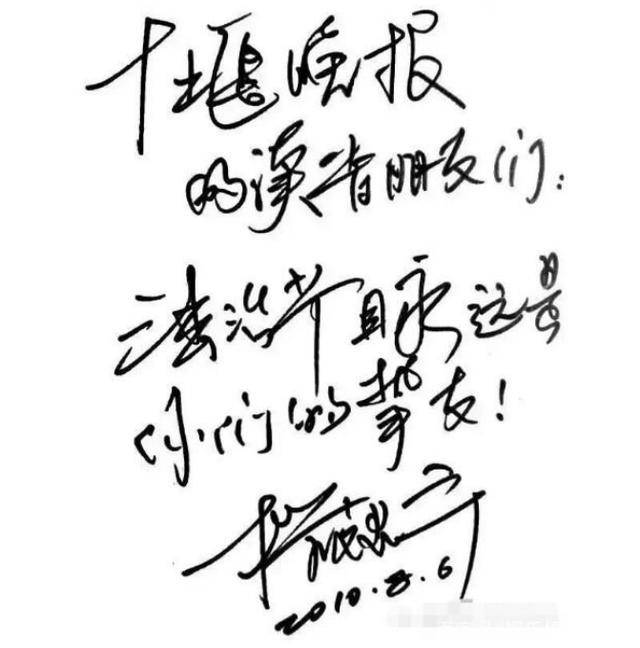 十堰晚报
的读者朋友们：
法治节目永远是
你们的挚友！
2010.8.6